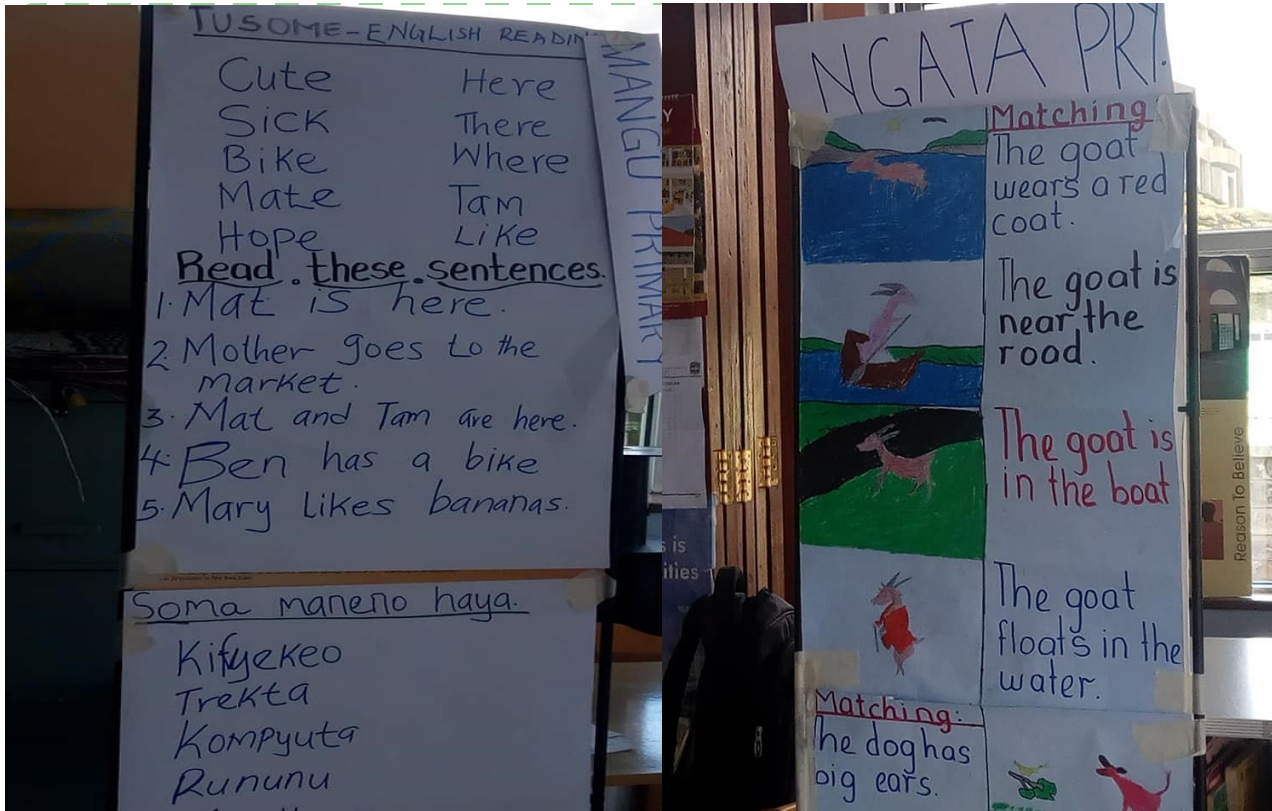 TUSOME-ENGLISH READIN
Cute Here
Sick There
Bike Where
Mate Tam
Hope Like
Read these sentences.
1. Mat is here.
2. Mother goes to the
market.
3. Mat and Tam are here.
4. Ben has a bike
5. Mary likes bananas.
MANGU PRIMARY
Soma maneno haya.
Kifyekeo
Trekta
Kompyuta
Rununu
NGATA PRY.
Matching
The goat
wears a red
coat.
The goat is
near the
road.
The goat is
in the boat
The goat
floats in the
water.
Matching:
The dog has
big ears.
Reason To Believe